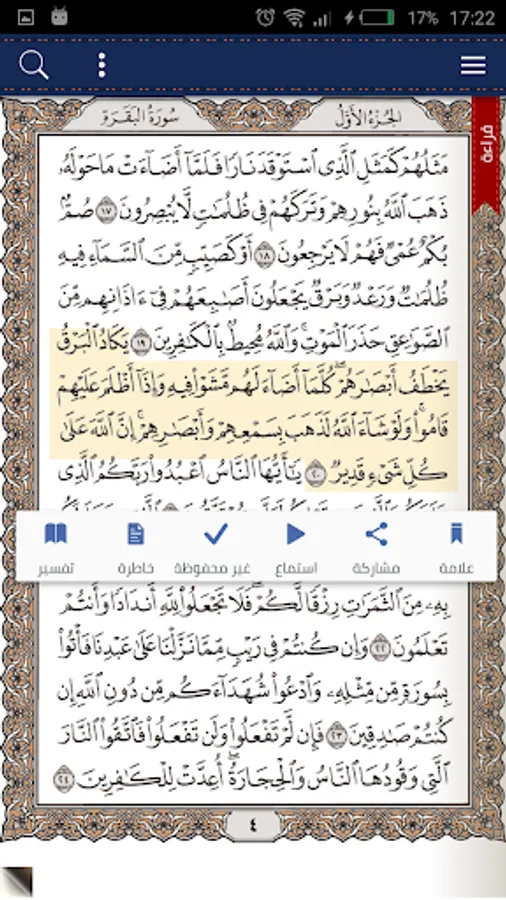 17% 17:22
سورة البقرة
الجزء الأول
قراءة
مَثَلُهُمْ كَمَثَلِ ٱلَّذِى ٱسْتَوْقَدَ نَارًا فَلَمَّآ أَضَآءَتْ مَا حَوْلَهُۥ
ذَهَبَ ٱللَّهُ بِنُورِهِمْ وَتَرَكَهُمْ فِى ظُلُمَٰتٍ لَّا يُبْصِرُونَ ١٧ صُمٌّۢ
بُكْمٌ عُمْىٌ فَهُمْ لَا يَرْجِعُونَ ١٨ أَوْ كَصَيِّبٍ مِّنَ ٱلسَّمَآءِ فِيهِ
ظُلُمَٰتٌ وَرَعْدٌ وَبَرْقٌ يَجْعَلُونَ أَصَٰبِعَهُمْ فِىٓ ءَاذَانِهِم مِّنَ
ٱلصَّوَٰعِقِ حَذَرَ ٱلْمَوْتِ ۚ وَٱللَّهُ مُحِيطٌۢ بِٱلْكَٰفِرِينَ ١٩ يَكَادُ ٱلْبَرْقُ
يَخْطَفُ أَبْصَٰرَهُمْ ۖ كُلَّمَآ أَضَآءَ لَهُم مَّشَوْا۟ فِيهِ وَإِذَآ أَظْلَمَ عَلَيْهِمْ
قَامُوا۟ ۚ وَلَوْ شَآءَ ٱللَّهُ لَذَهَبَ بِسَمْعِهِمْ وَأَبْصَٰرِهِمْ ۚ إِنَّ ٱللَّهَ عَلَىٰ
كُلِّ شَىْءٍ قَدِيرٌ ٢٠ يَٰٓأَيُّهَا ٱلنَّاسُ ٱعْبُدُوا۟ رَبَّكُمُ ٱلَّذِى
علامة مشاركة استماع غير محفوظة خاطرة تفسير
بِهِۦ مِنَ ٱلثَّمَرَٰتِ رِزْقًا لَّكُمْ ۖ فَلَا تَجْعَلُوا۟ لِلَّهِ أَندَادًا وَأَنتُمْ
تَعْلَمُونَ ٢٢ وَإِن كُنتُمْ فِى رَيْبٍ مِّمَّا نَزَّلْنَا عَلَىٰ عَبْدِنَا فَأْتُوا۟
بِسُورَةٍ مِّن مِّثْلِهِۦ وَٱدْعُوا۟ شُهَدَآءَكُم مِّن دُونِ ٱللَّهِ إِن
كُنتُمْ صَٰدِقِينَ ٢٣ فَإِن لَّمْ تَفْعَلُوا۟ وَلَن تَفْعَلُوا۟ فَٱتَّقُوا۟ ٱلنَّارَ
ٱلَّتِى وَقُودُهَا ٱلنَّاسُ وَٱلْحِجَارَةُ ۖ أُعِدَّتْ لِلْكَٰفِرِينَ ٢٤
٤